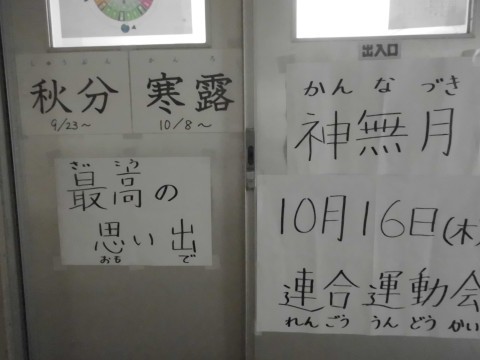 しゅうぶん
秋分
9/23〜
かんろ
寒露
10/8〜
さいこう
最高の
思い出
おもで
出入口
かんなづき
神無月
10月16日(木
連合運動会
れんごううんどうかい